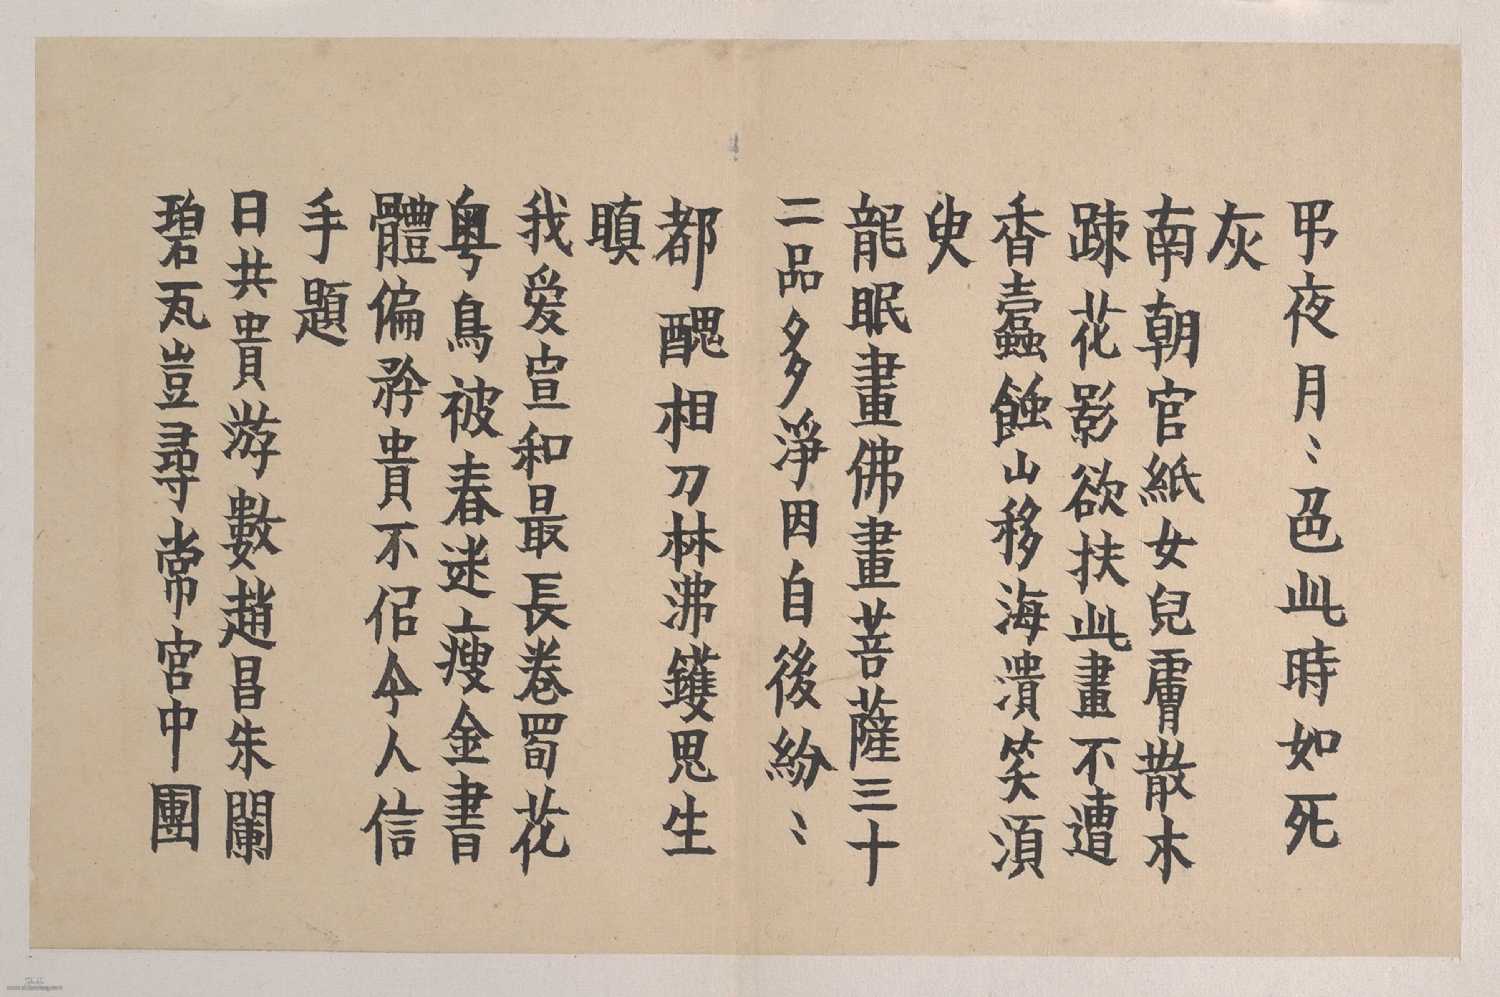 弔夜月〻色此時如死
灰
南朝官紙女兒膚散木
疎花影欲扶此畫不遭
香蠹蝕山移海潰笑須
臾
龍眠畫佛畫菩薩三十
二品多淨因自後紛〻
都醜相刀林沸鑊思生
瞋
我愛宣和最長卷蜀花
粵鳥被春迷瘦金書
體偏矜貴不侶今人信
手題
日共貴游數趙昌朱闌
碧瓦豈尋常宮中團